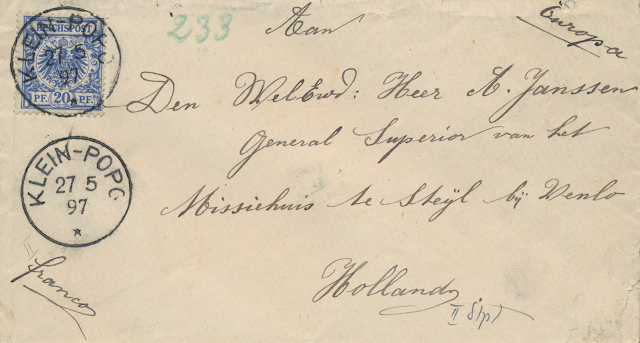 233
Aan
Europa
REICHSPOST
PF. 20 PF.
KLEIN-POPO
27 5
97
Den WelEwd: Heer A. Janssen
General Superior van het
KLEIN-POPO
27 5
97
Missiehuis te Steÿl bÿ Venlo
franco
Holland
II